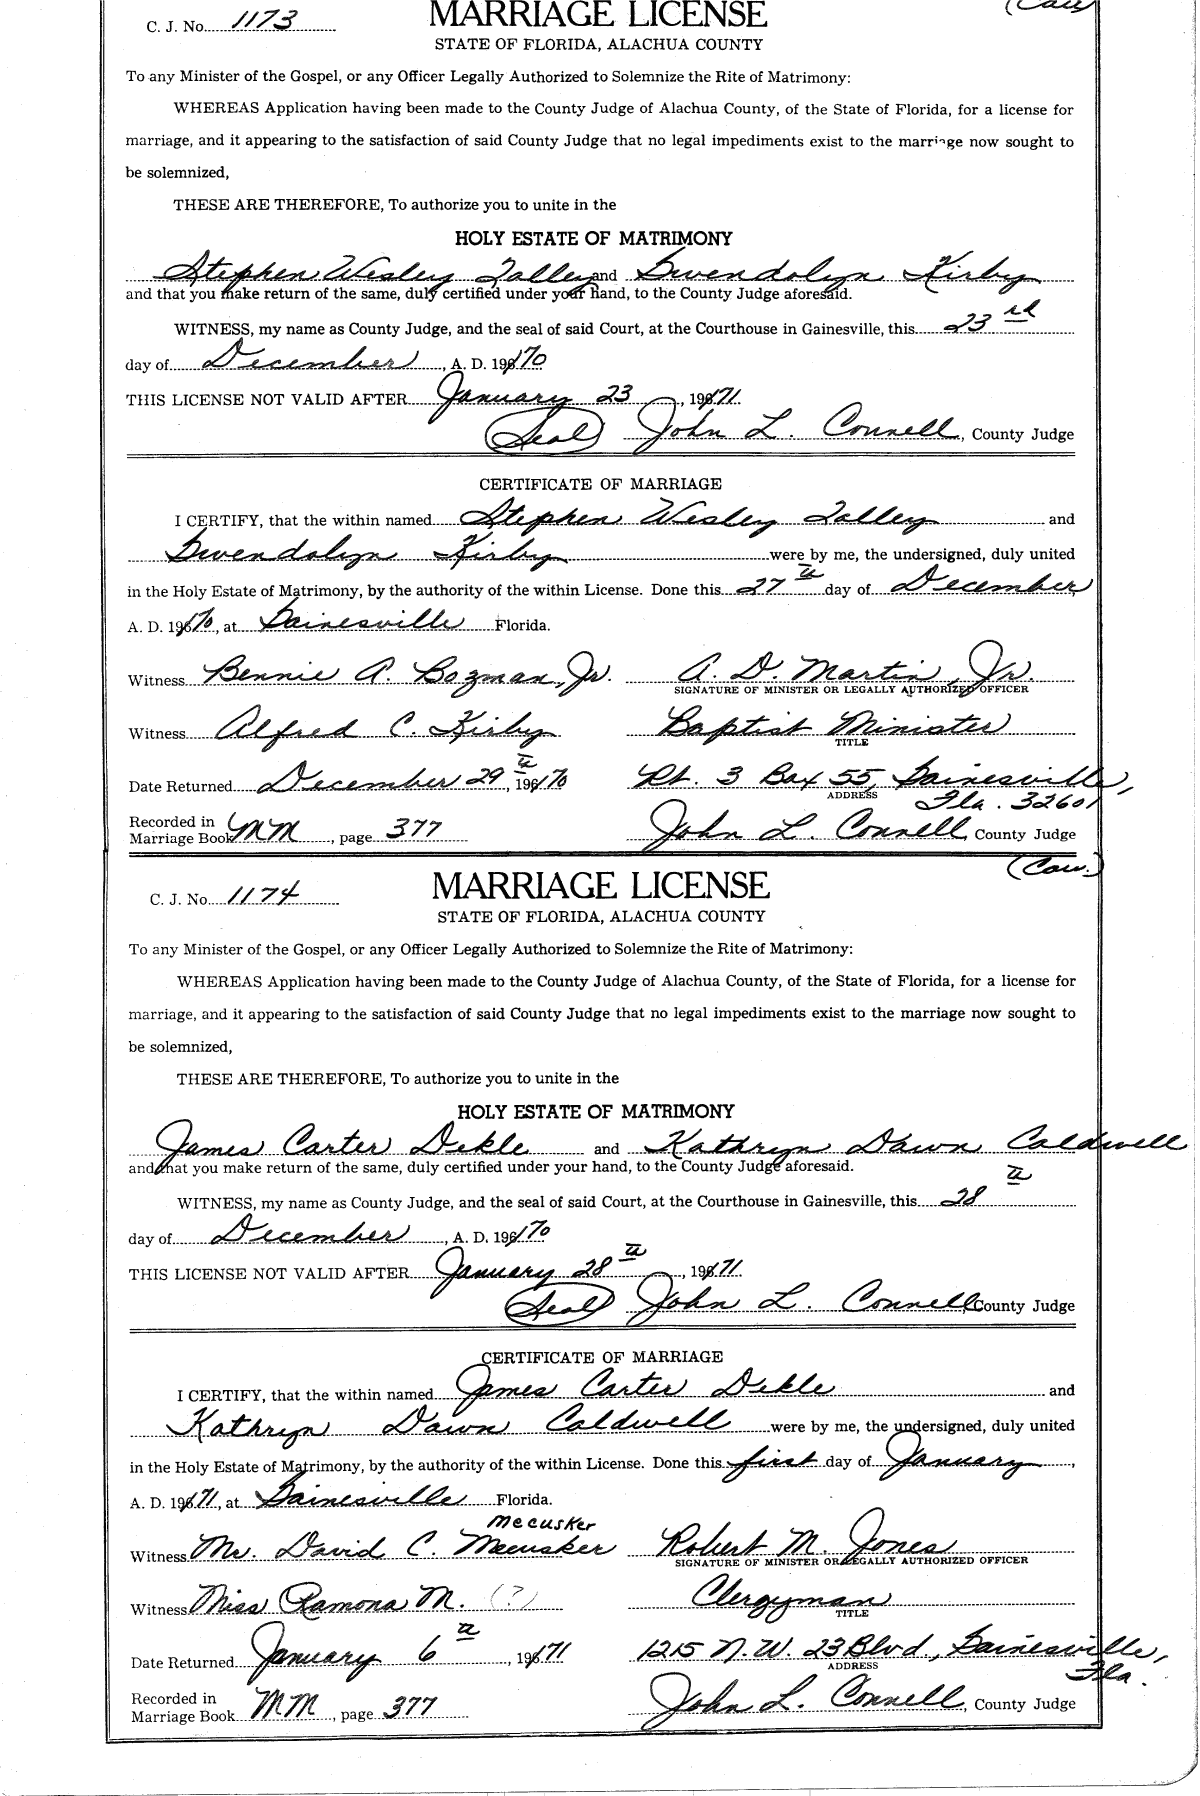 (Cau.)
C. J. No. 1173
MARRIAGE LICENSE
STATE OF FLORIDA, ALACHUA COUNTY
To any Minister of the Gospel, or any Officer Legally Authorized to Solemnize the Rite of Matrimony:
WHEREAS Application having been made to the County Judge of Alachua County, of the State of Florida, for a license for
marriage, and it appearing to the satisfaction of said County Judge that no legal impediments exist to the marriage now sought to
be solemnized,
THESE ARE THEREFORE, To authorize you to unite in the
HOLY ESTATE OF MATRIMONY
Stephen Wesley Talley and Gwendolyn Kirby
and that you make return of the same, duly certified under your hand, to the County Judge aforesaid.
WITNESS, my name as County Judge, and the seal of said Court, at the Courthouse in Gainesville, this 23rd
day of December, A. D. 1970
THIS LICENSE NOT VALID AFTER January 23, 1971
(Seal) John L. Connell, County Judge
CERTIFICATE OF MARRIAGE
I CERTIFY, that the within named Stephen Wesley Talley and
Gwendolyn Kirby were by me, the undersigned, duly united
in the Holy Estate of Matrimony, by the authority of the within License. Done this 27th day of December
A. D. 1970, at Gainesville Florida.
Witness Bennie A. Bozman, Jr. A. D. Martin, Jr.
SIGNATURE OF MINISTER OR LEGALLY AUTHORIZED OFFICER
Witness Alfred C. Kirby Baptist Minister
TITLE
Date Returned December 29th, 1970 Rt. 3 Box 55, Gainesville,
ADDRESS Fla. 32601
Recorded in
Marriage Book MM, page 377 John L. Connell, County Judge
(Cau.)
C. J. No. 1174
MARRIAGE LICENSE
STATE OF FLORIDA, ALACHUA COUNTY
To any Minister of the Gospel, or any Officer Legally Authorized to Solemnize the Rite of Matrimony:
WHEREAS Application having been made to the County Judge of Alachua County, of the State of Florida, for a license for
marriage, and it appearing to the satisfaction of said County Judge that no legal impediments exist to the marriage now sought to
be solemnized,
THESE ARE THEREFORE, To authorize you to unite in the
HOLY ESTATE OF MATRIMONY
James Carter Dekle and Kathryn Dawn Caldwell
and that you make return of the same, duly certified under your hand, to the County Judge aforesaid.
WITNESS, my name as County Judge, and the seal of said Court, at the Courthouse in Gainesville, this 28th
day of December, A. D. 1970
THIS LICENSE NOT VALID AFTER January 28th, 1971
(Seal) John L. Connell, County Judge
CERTIFICATE OF MARRIAGE
I CERTIFY, that the within named James Carter Dekle and
Kathryn Dawn Caldwell were by me, the undersigned, duly united
in the Holy Estate of Matrimony, by the authority of the within License. Done this first day of January,
A. D. 1971, at Gainesville Florida.
Mecusker
Witness Mr. David C. Mecusker Robert M. Jones
SIGNATURE OF MINISTER OR LEGALLY AUTHORIZED OFFICER
Witness Miss Ramona M. (?) Clergyman
TITLE
Date Returned January 6th, 1971 1215 N.W. 23 Blvd., Gainesville,
ADDRESS Fla.
Recorded in
Marriage Book MM, page 377 John L. Connell, County Judge